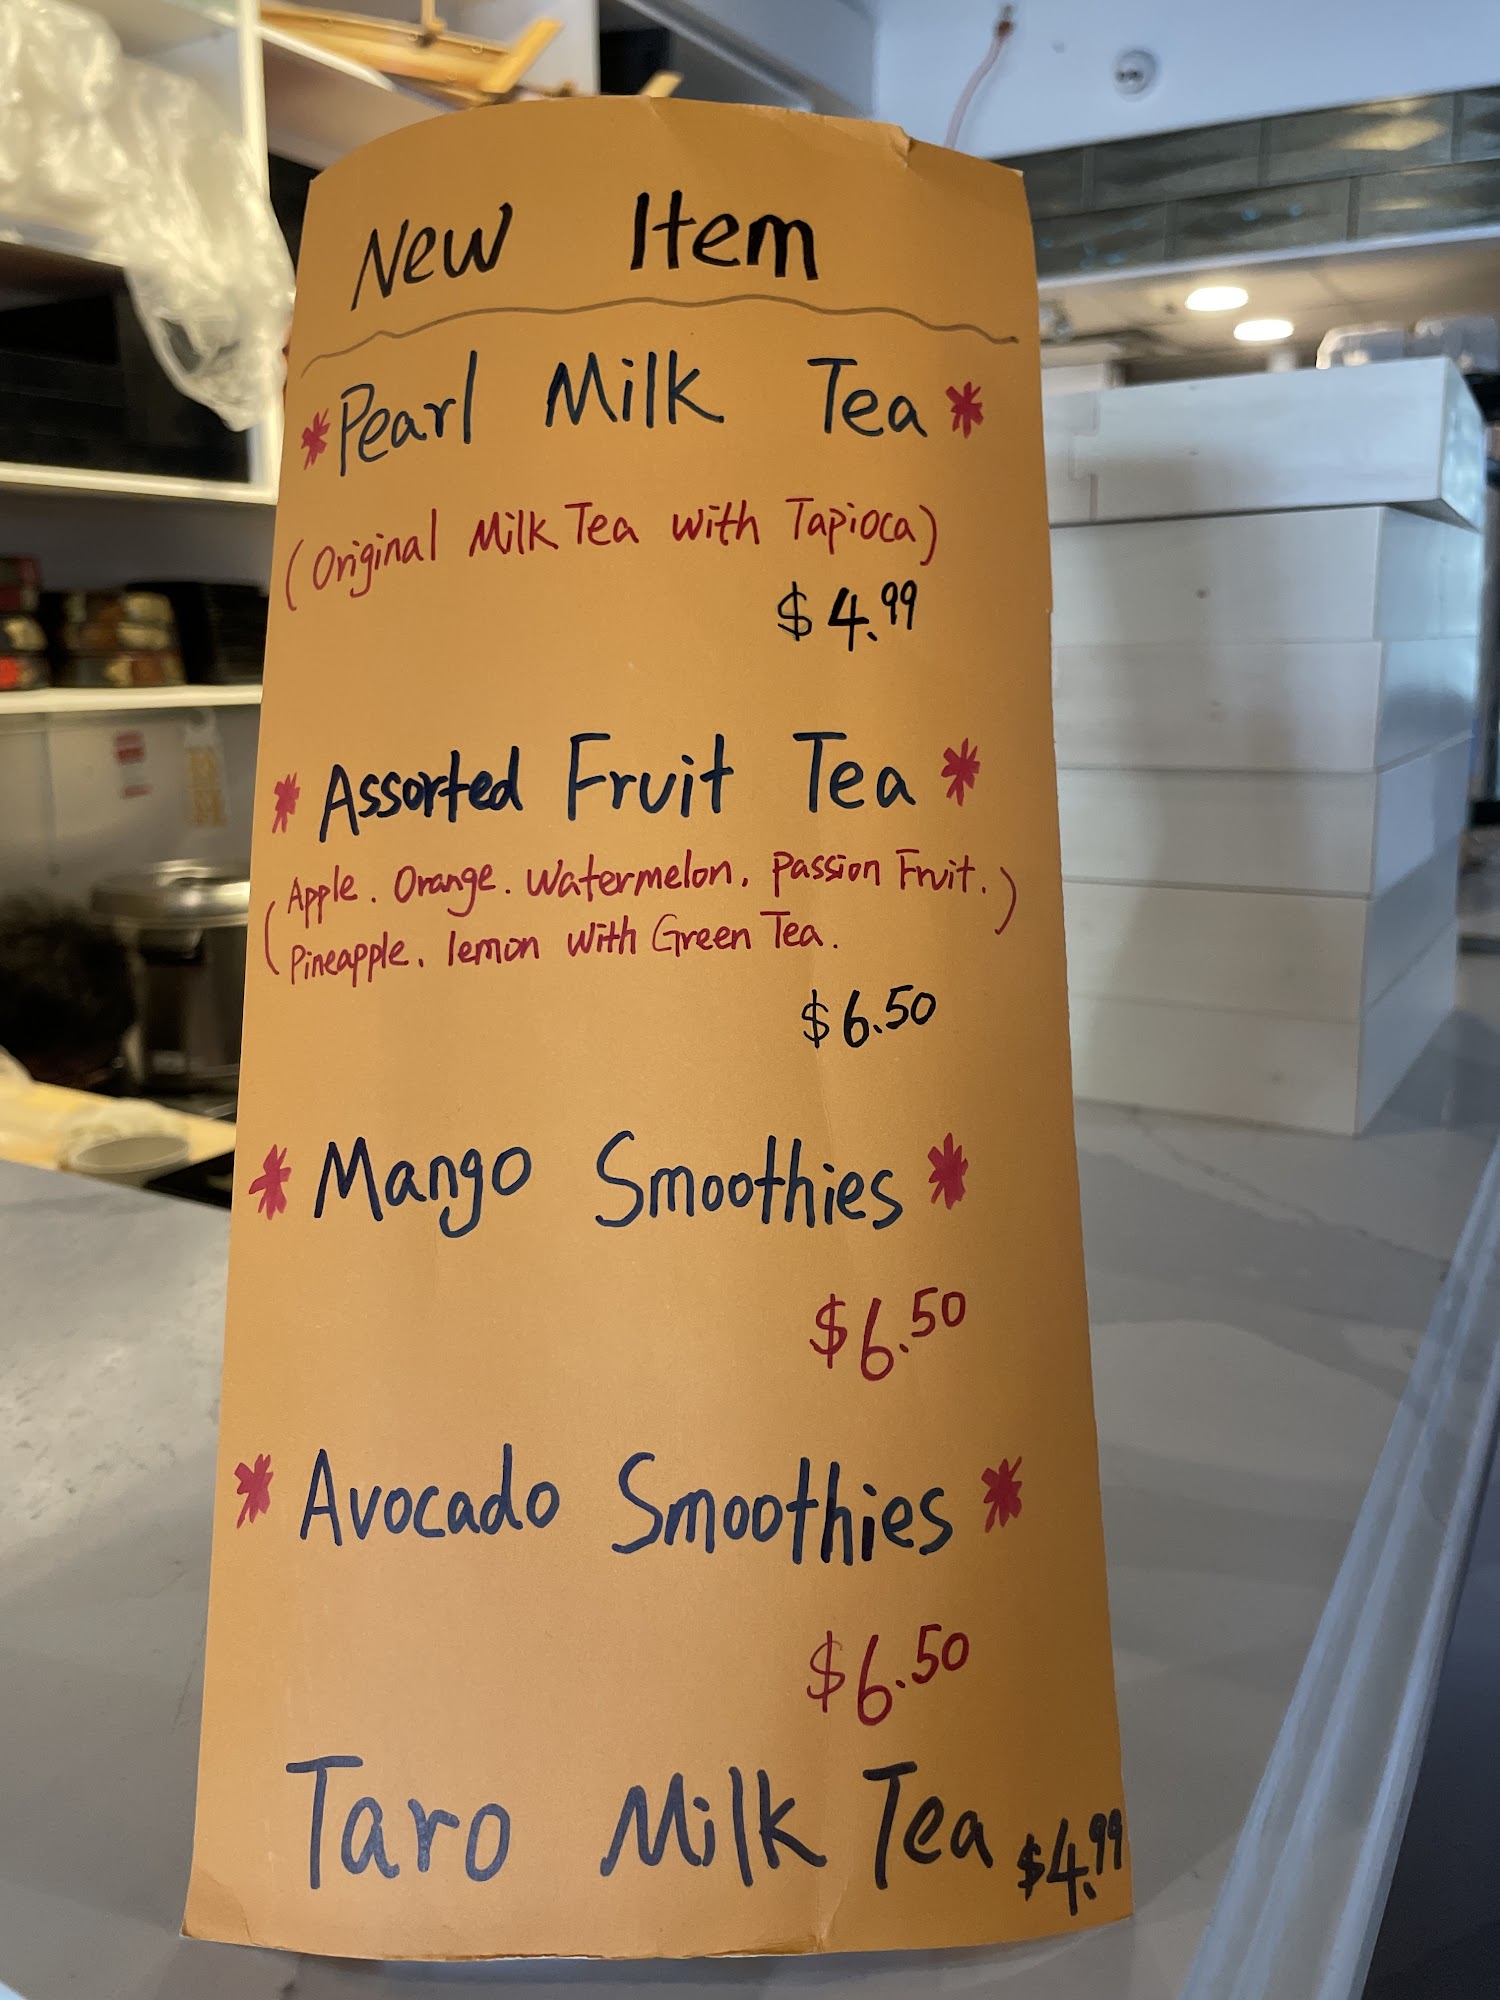 New Item
*Pearl Milk Tea*
(Original Milk Tea with Tapioca)
$4.99
*Assorted Fruit Tea*
(Apple. Orange. Watermelon. Passion Fruit.
Pineapple. lemon with Green Tea.)
$6.50
*Mango Smoothies*
$6.50
*Avocado Smoothies*
$6.50
Taro Milk Tea $4.99